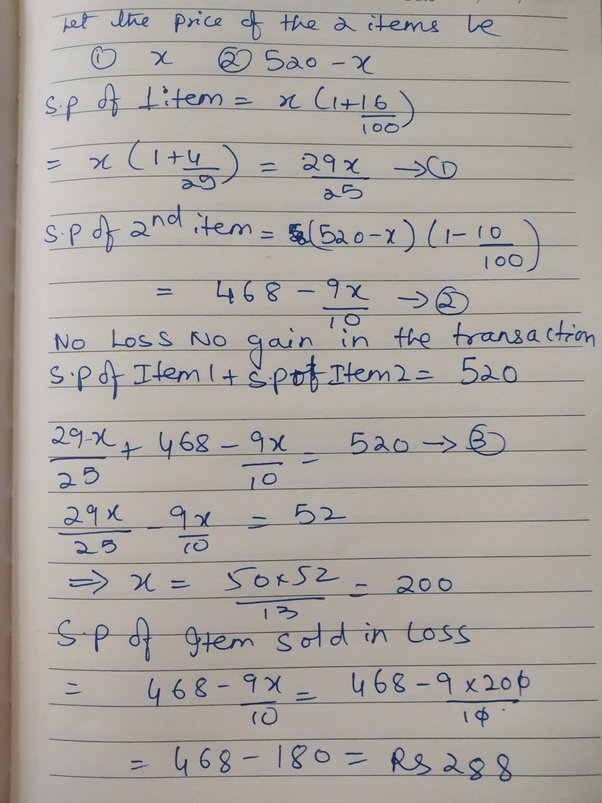 Let the price of the 2 items be
① x ② 520 - x
S.p of 1 item = x (1+16/100)
= x (1+4/25) = 29x/25 → ①
S.p of 2nd item = (520-x) (1-10/100)
= 468 - 9x/10 → ②
No Loss No gain in the transaction
S.p of Item 1 + S.p of Item 2 = 520
29x/25 + 468 - 9x/10 = 520 → ③
29x/25 - 9x/10 = 52
⇒ x = 50x52/13 = 200
S.p of Item sold in Loss
= 468 - 9x/10 = 468 - 9 x 200/10
= 468 - 180 = Rs 288